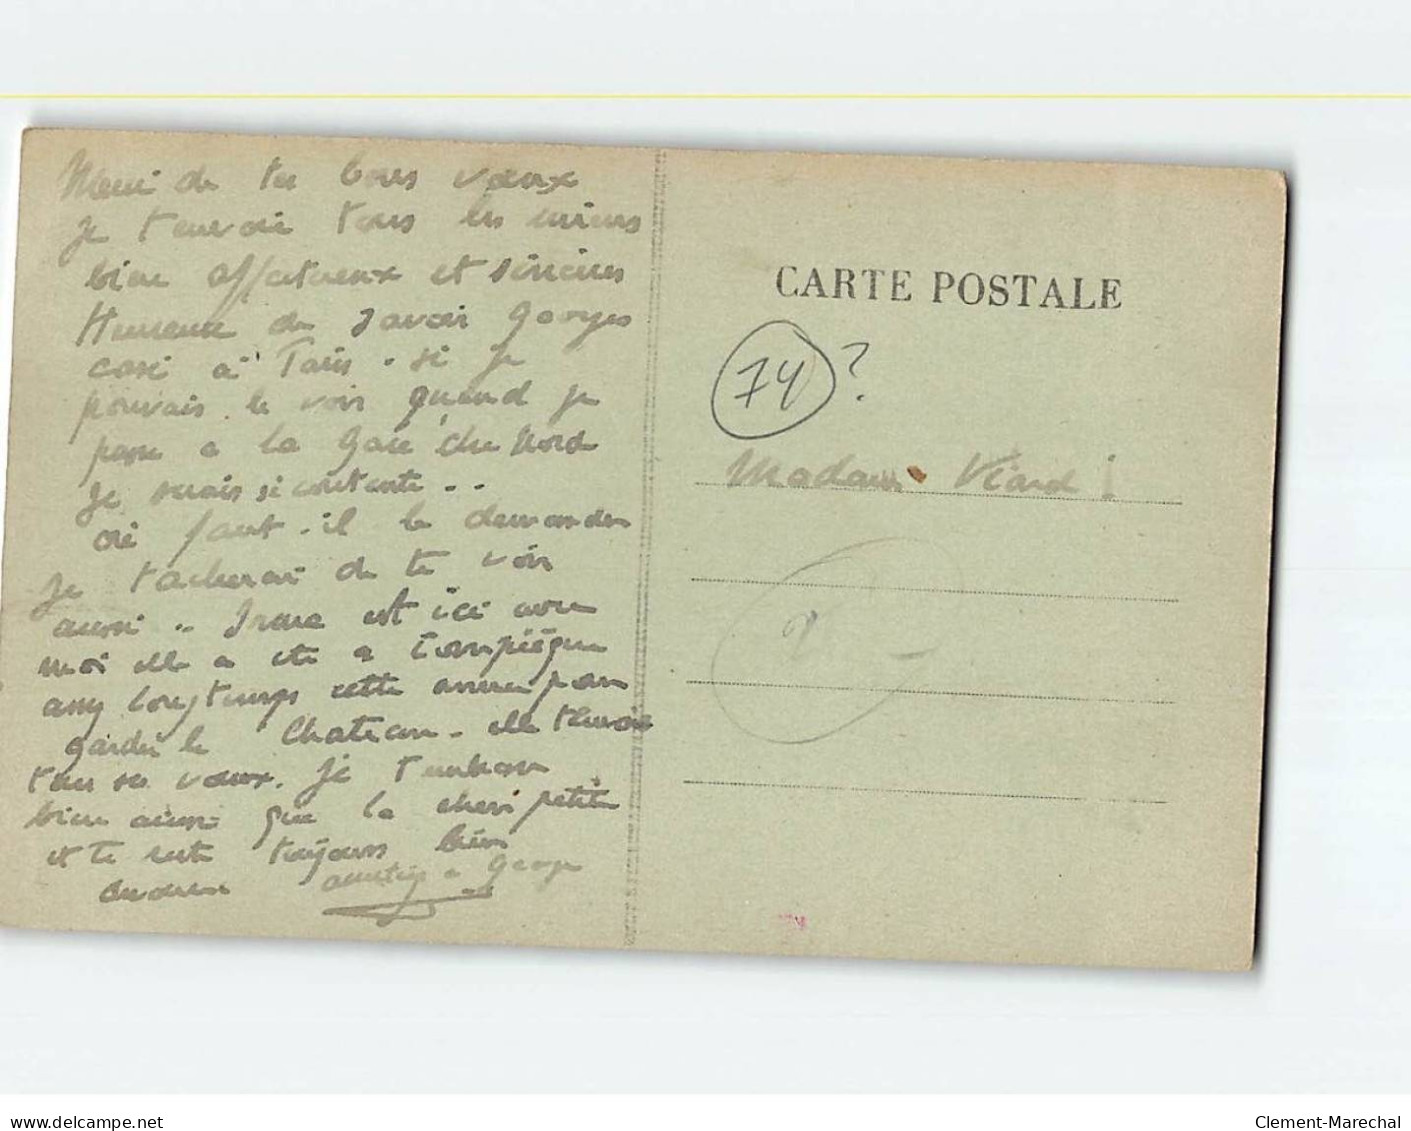 Merci de tes bons vœux
je t'envoie tous les miens
bien affectueux et sincères
Heureuse de savoir Georges
casé à Paris. si je
pouvais le voir quand je
passe a la Gare du Nord
je serais si contente..
où faut-il le demander
je tacherai de te voir
aussi.. Irene est ici avec
moi elle a été a Compiègne
assez longtemps cette année pour
garder le Chateau. elle t'envoie
tous ses vœux. je t'embrasse
bien ainsi que la chère petite
et te reste toujours bien
amitiés a Georges
CARTE POSTALE
74 ?
Madame Viard
delcampe.net
Clement-Marechal